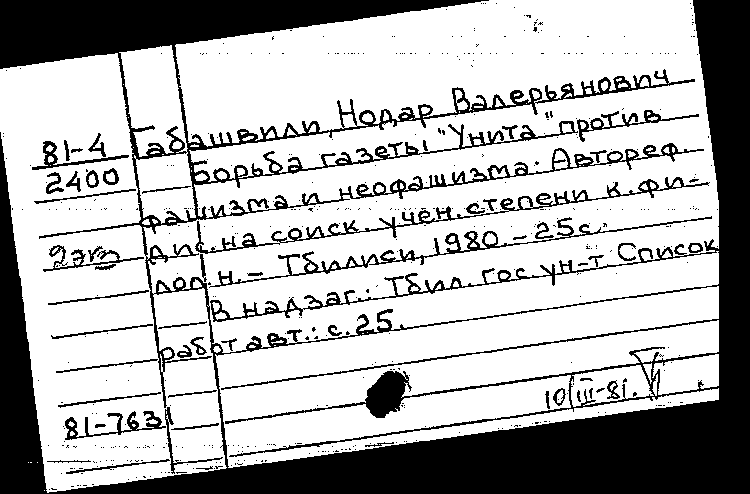 81-4 Габашвили, Нодар Валерьянович
2400 Борьба газеты "Унита" против
фашизма и неофашизма: Автореф.
2экз дис. на соиск. учен. степени к. фи-
лол. н. - Тбилиси, 1980. - 25 с.
В надзаг.: Тбил. гос. ун-т. Список
работ авт.: с. 25.
81-7631
10/III-81.